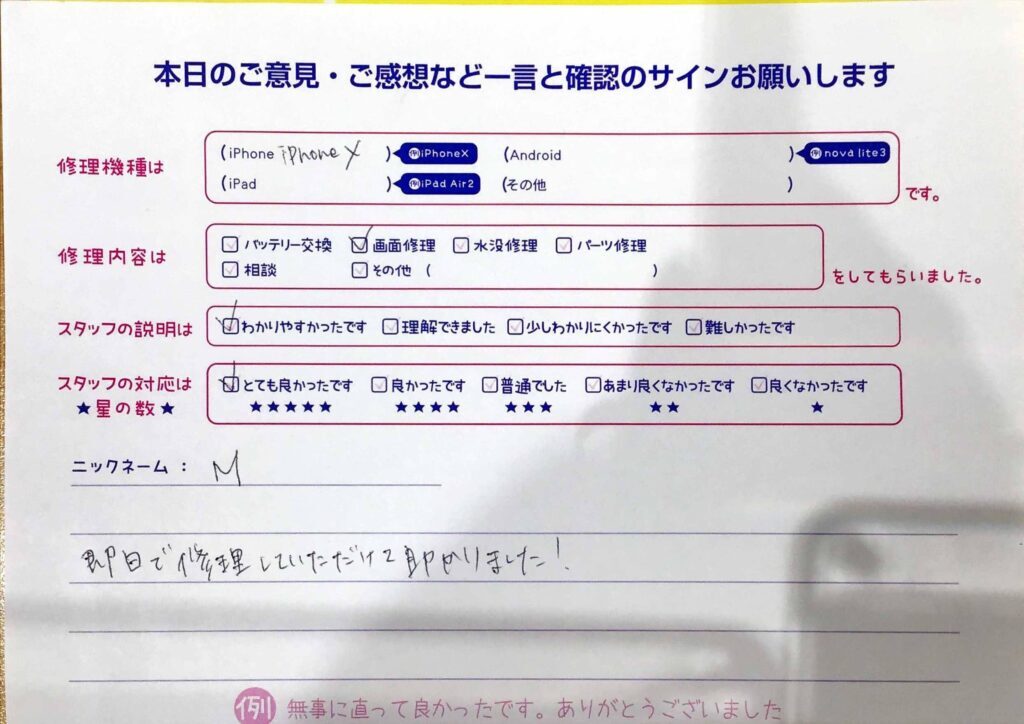 本日のご意見・ご感想など一言と確認のサインお願いします
修理機種は (iPhone iPhone X ) 例iPhoneX (Android ) 例nova lite3
(iPad ) 例iPad Air2 (その他 ) です。
修理内容は バッテリー交換 画面修理 水没修理 パーツ修理
相談 その他 ( ) をしてもらいました。
スタッフの説明は わかりやすかったです 理解できました 少しわかりにくかったです 難しかったです
スタッフの対応は とても良かったです 良かったです 普通でした あまり良くなかったです 良くなかったです
★星の数★ ★★★★★ ★★★★ ★★★ ★★ ★
ニックネーム: M
即日で修理していただけて助かりました!
例 無事に直って良かったです。ありがとうございました